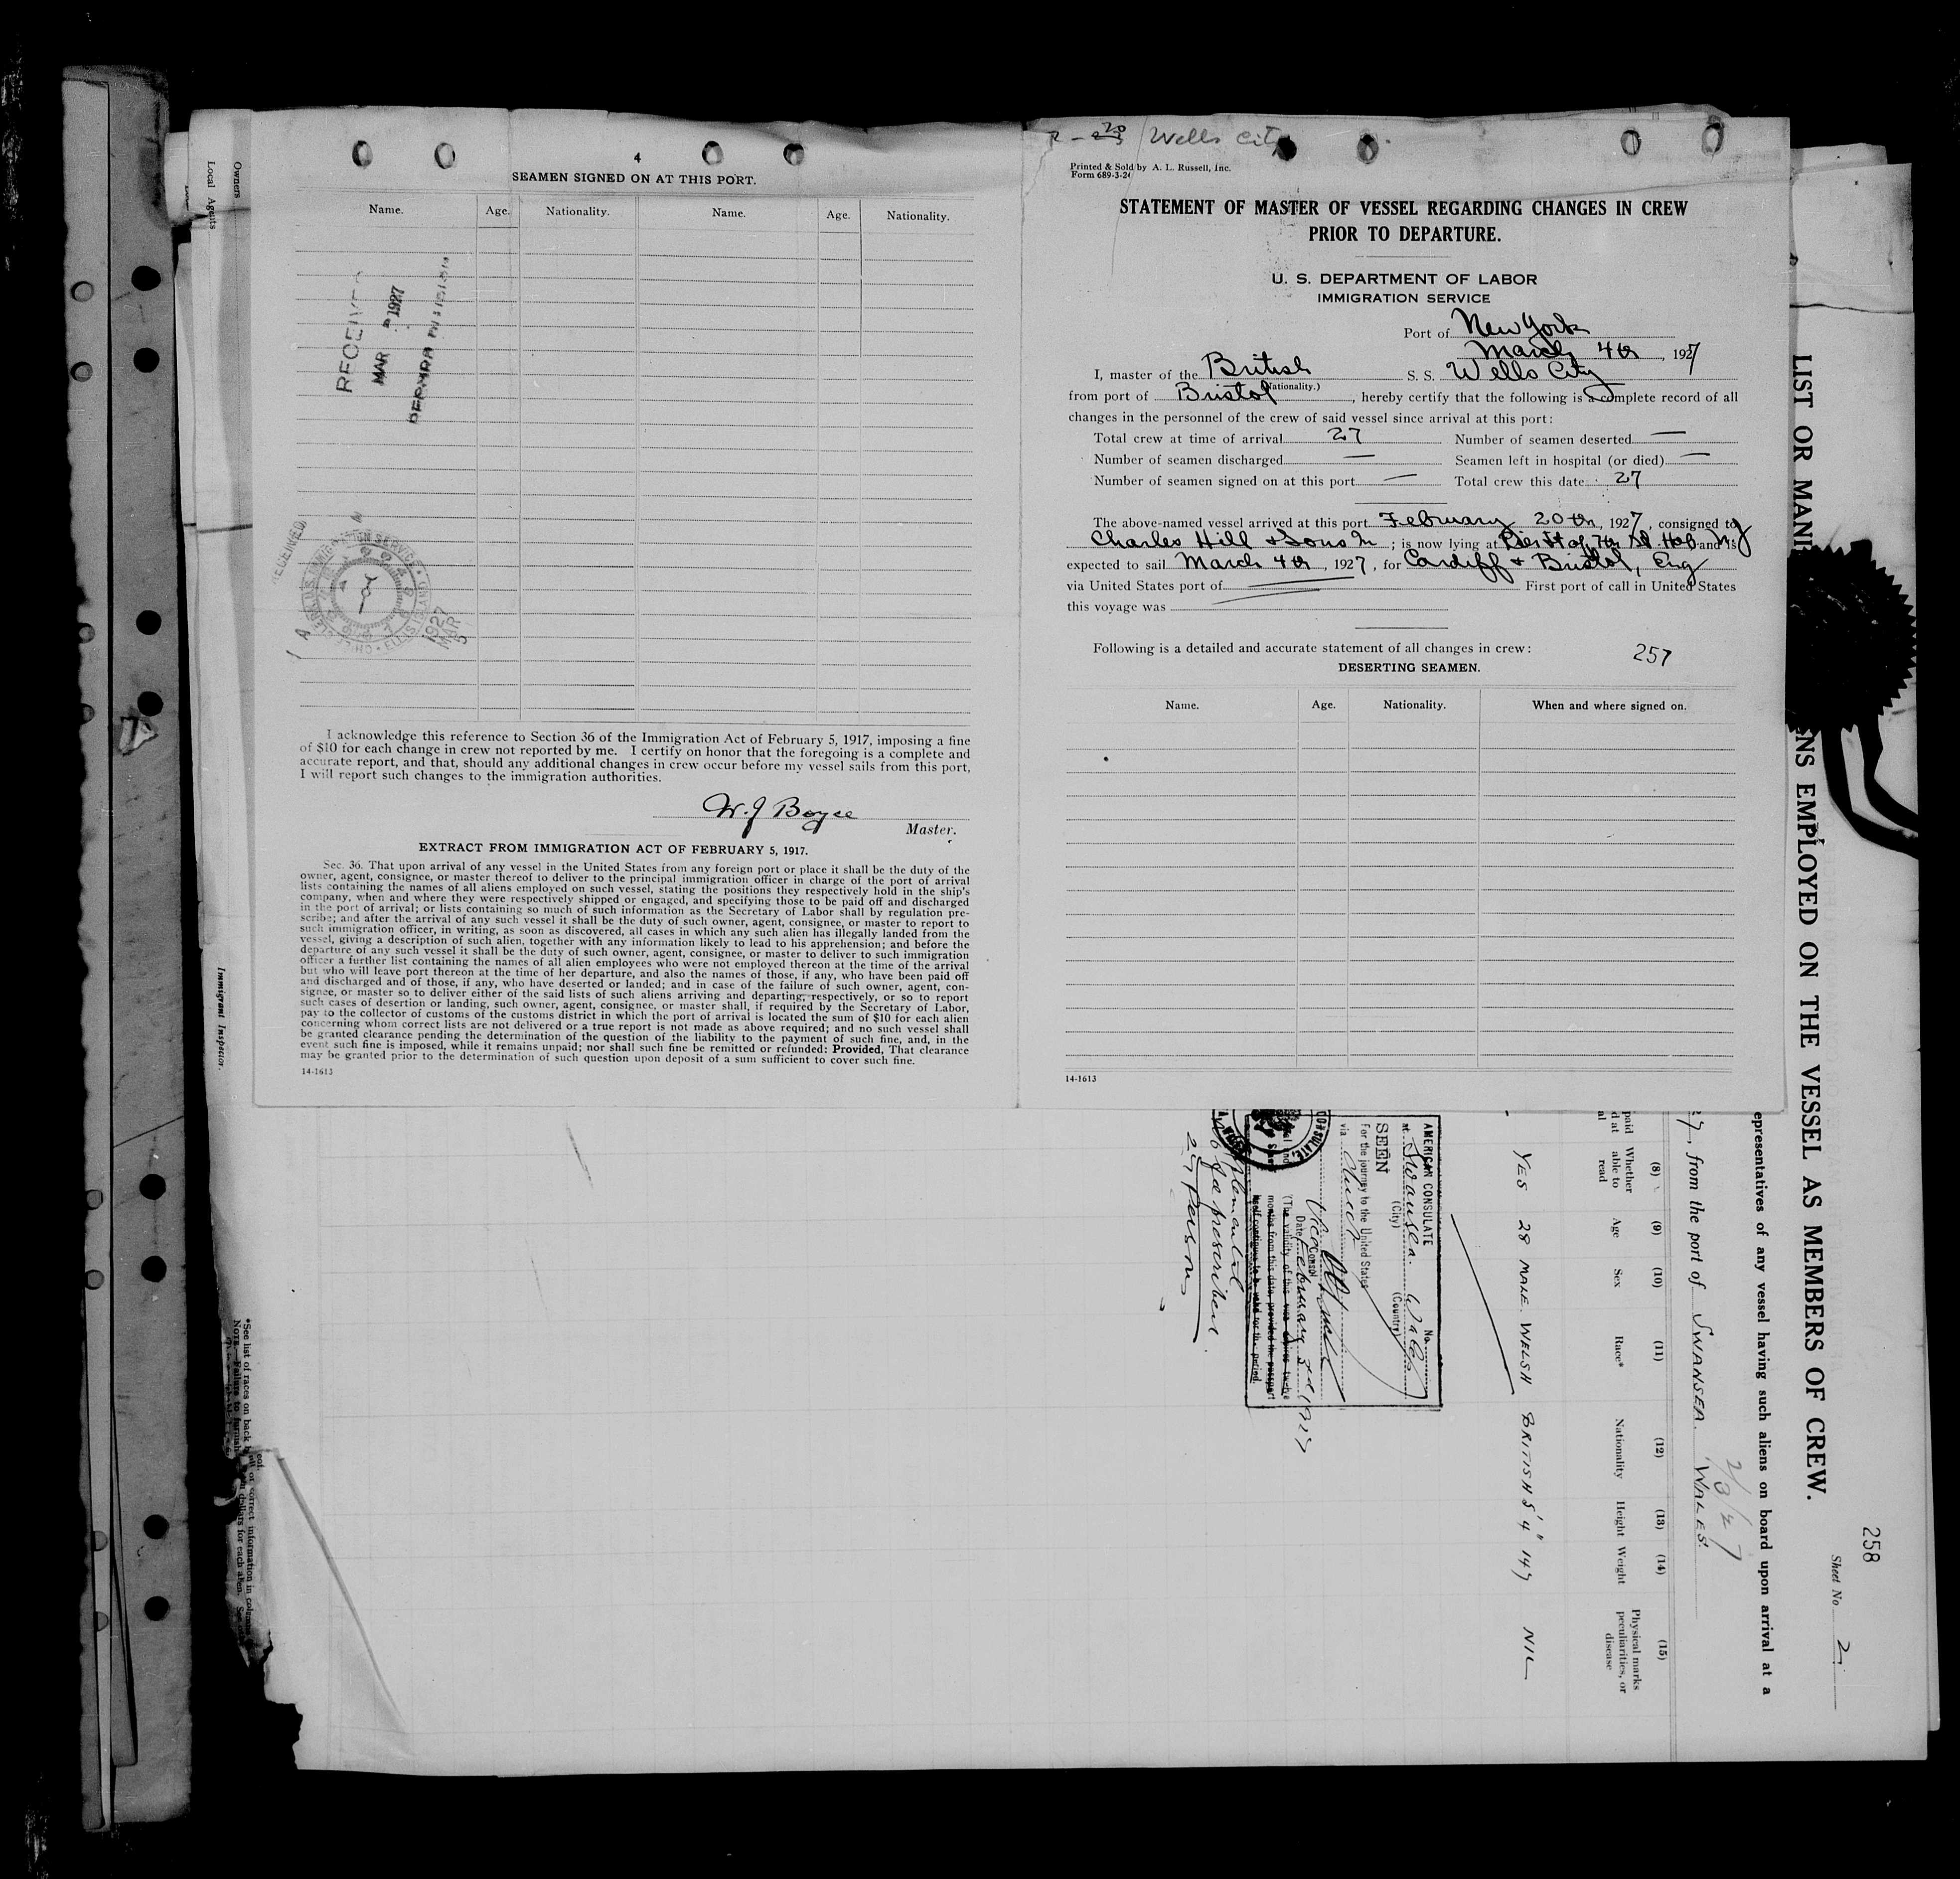 Owners
Local Agents
Immigrant Inspector.
4
SEAMEN SIGNED ON AT THIS PORT.
Name. Age. Nationality. Name. Age. Nationality.
RECEIVED
MAR 1927
RECEIVED
1927
MAR
5
I acknowledge this reference to Section 36 of the Immigration Act of February 5, 1917, imposing a fine
of $10 for each change in crew not reported by me. I certify on honor that the foregoing is a complete and
accurate report, and that, should any additional changes in crew occur before my vessel sails from this port,
I will report such changes to the immigration authorities.
W. J Boyce
Master.
EXTRACT FROM IMMIGRATION ACT OF FEBRUARY 5, 1917.
Sec. 36. That upon arrival of any vessel in the United States from any foreign port or place it shall be the duty of the
owner, agent, consignee, or master thereof to deliver to the principal immigration officer in charge of the port of arrival
lists containing the names of all aliens employed on such vessel, stating the positions they respectively hold in the ship's
company, when and where they were respectively shipped or engaged, and specifying those to be paid off and discharged
in the port of arrival; or lists containing so much of such information as the Secretary of Labor shall by regulation pre-
scribe; and after the arrival of any such vessel it shall be the duty of such owner, agent, consignee, or master to report to
such immigration officer, in writing, as soon as discovered, all cases in which any such alien has illegally landed from the
vessel, giving a description of such alien, together with any information likely to lead to his apprehension; and before the
departure of any such vessel it shall be the duty of such owner, agent, consignee, or master to deliver to such immigration
officer a further list containing the names of all alien employees who were not employed thereon at the time of the arrival
but who will leave port thereon at the time of her departure, and also the names of those, if any, who have been paid off
and discharged and of those, if any, who have deserted or landed; and in case of the failure of such owner, agent, con-
signee, or master so to deliver either of the said lists of such aliens arriving and departing, respectively, or so to report
such cases of desertion or landing, such owner, agent, consignee, or master shall, if required by the Secretary of Labor,
pay to the collector of customs of the customs district in which the port of arrival is located the sum of $10 for each alien
concerning whom correct lists are not delivered or a true report is not made as above required; and no such vessel shall
be granted clearance pending the determination of the question of the liability to the payment of such fine, and, in the
event such fine is imposed, while it remains unpaid; nor shall such fine be remitted or refunded: Provided, That clearance
may be granted prior to the determination of such question upon deposit of a sum sufficient to cover such fine.
14-1613
Wells City
Printed & Sold by A. L. Russell, Inc.
Form 689-3-26
STATEMENT OF MASTER OF VESSEL REGARDING CHANGES IN CREW
PRIOR TO DEPARTURE.
U. S. DEPARTMENT OF LABOR
IMMIGRATION SERVICE
Port of New York
March 4th, 1927
I, master of the British S. S. Wells City
(Nationality.)
from port of Bristol, hereby certify that the following is a complete record of all
changes in the personnel of the crew of said vessel since arrival at this port:
Total crew at time of arrival 27 Number of seamen deserted —
Number of seamen discharged — Seamen left in hospital (or died) —
Number of seamen signed on at this port — Total crew this date 27
The above-named vessel arrived at this port February 20th, 1927, consigned to
Charles Hill & Sons ; is now lying at 7th St Hob NJ and is
expected to sail March 4th, 1927, for Cardiff & Bristol, Eng
via United States port of First port of call in United States
this voyage was
Following is a detailed and accurate statement of all changes in crew:
257
DESERTING SEAMEN.
Name. Age. Nationality. When and where signed on.
14-1613
LIST OR MANI
NS EMPLOYED ON THE VESSEL AS MEMBERS OF CREW.
258
Sheet No. 2
epresentatives of any vessel having such aliens on board upon arrival at a
from the port of SWANSEA. WALES.
2/3/27
(8) (9) (10) (11) (12) (13) (14) (15)
Whether able to read Age Sex Race* Nationality Height Weight Physical marks peculiarities, or disease
YES 28 MALE. WELSH BRITISH 5' 4" 147 NIL
AMERICAN CONSULATE
No.
at Swansea. Wales
(City) (Country)
SEEN
For the journey to the United States
via direct
Vice Consul
Date February 3rd 1927
(The validity of this visa expires twelve
months from this date, provided the passport
itself continues to be valid for that period.
No fee prescribed.
*See list of races on back